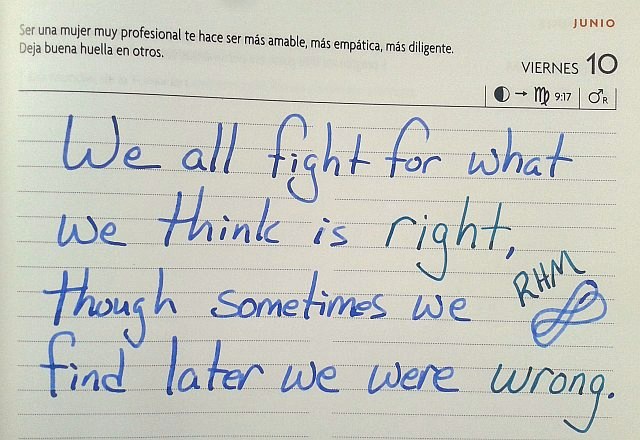 JUNIO
Ser una mujer muy profesional te hace ser más amable, más empática, más diligente.
Deja buena huella en otros.
VIERNES 10
→ ♍ 9:17 ♂R
We all fight for what
we think is right,
though sometimes we
RHM
find later we were wrong.